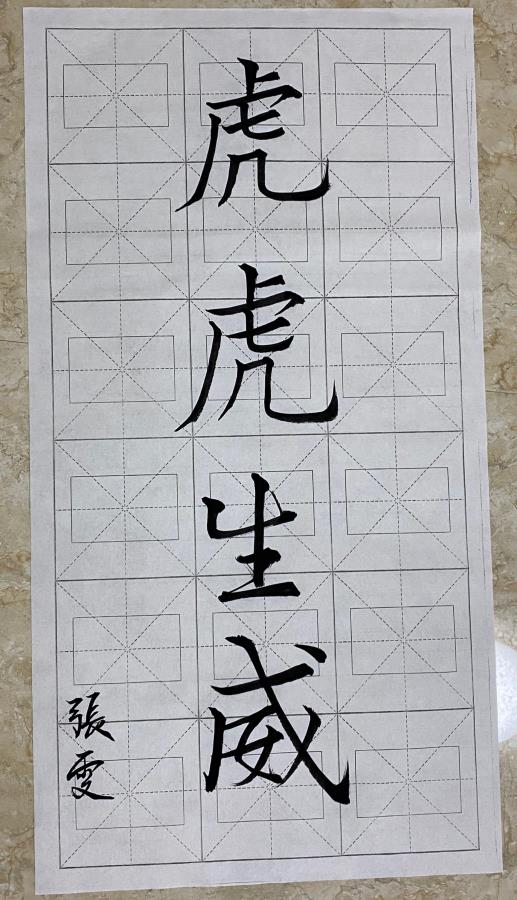 虎虎生威
張雯